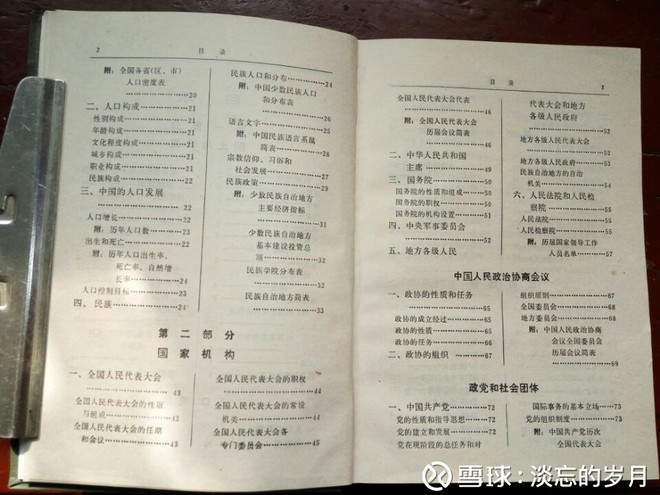 2 目录
附：全国各省(区、市)
人口密度表
……20
二、人口构成……21
性别构成……21
年龄构成……21
文化程度构成……21
城乡构成……21
职业构成……22
民族构成……22
三、中国的人口发展
……22
人口增长……22
附：历年人口数……23
出生和死亡……23
附：历年人口出生率、
死亡率、自然增
长率……24
人口控制目标……23
四、民族……24
民族人口和分布……24
附：中国少数民族人口
和分布表
……26
语言文字……25
附：中国民族语言系属
简表……28
宗教信仰、习俗和
社会发展……28
民族政策……29
附：少数民族自治地方
主要经济指标
……31
少数民族自治地方
基本建设投资总
额……32
民族学院分布表
……32
民族自治地方简表
……33
第二部分
国家机构
一、全国人民代表大会
……43
全国人民代表大会的性质
与组成……43
全国人民代表大会的任期
和会议……43
全国人民代表大会的职权
……44
全国人民代表大会的常设
机关……44
全国人民代表大会各
专门委员会……45
目录
全国人民代表大会代表
……46
附：全国人民代表大会
历届会议简表
……46
二、中华人民共和国
主席……49
三、国务院……50
国务院的性质和组成……50
国务院的职权……50
国务院的机构设置……51
四、中央军事委员会
……52
五、地方各级人民
代表大会和地方
各级人民政府
……52
地方各级人民代表大会
……52
地方各级人民政府……53
民族自治地方的自治
机关……54
六、人民法院和人民检
察院……55
人民法院……55
人民检察院……56
附：历届国家领导工作
人员名单……57
中国人民政治协商会议
一、政协的性质和任务
……65
政协的成立经过……65
政协的性质……65
政协的任务……66
二、政协的组织……67
组织原则……67
全国委员会……68
地方委员会……68
附：中国人民政治协商
会议全国委员会
历届会议简表
……69
政党和社会团体
一、中国共产党……72
党的性质和指导思想……72
党的建立和发展……72
党在现阶段的总任务和对
国际事务的基本立场……73
党的组织制度……73
附：中国共产党历次
全国代表大会
雪球：淡忘的岁月